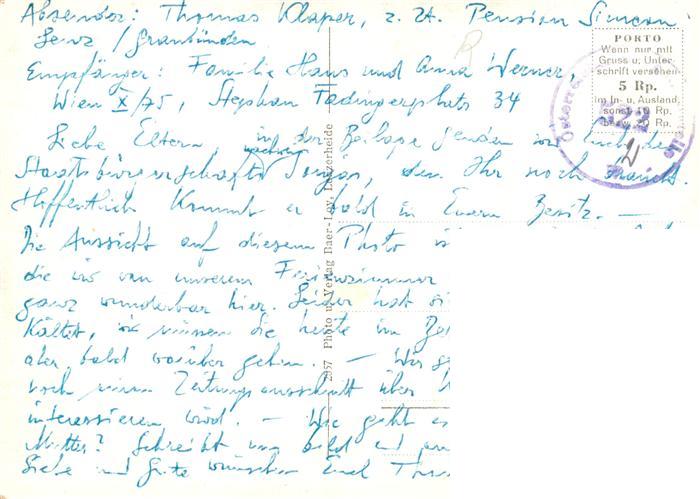 Absender: Thomas Klaper, z. Zt. Pension Simeon
Lenz / Graubünden
Empfänger: Familie Hans und Anna Werner,
Wien X/75, Stephan Fadingerplatz 34
PORTO
Wenn nur mit
Gruss u. Unter-
schrift versehen
5 Rp.
im In- u. Ausland,
sonst 10 Rp.
bezw. 20 Rp.
522
Liebe Eltern, in der Beilage senden wir Euch den
Staatsbürgerschafts den Ihr noch braucht.
Hoffentlich kommt er bald in Euern Besitz. —
Die Aussicht auf diesem Photo is
die wir von unserem Ferienzimmer
ganz wunderbar hier. Leider hat si
Kälte, wir müssen die heute im
aber bald vorüber gehen. — Wir
noch einen Zeitungsausschnitt über
interessieren wird. — Wie geht es
Mutter? Schreibt uns bald und
Liebe und Gute wünschen Euch
2957 Photo u. Verlag Baer-Ley, Lenzerheide